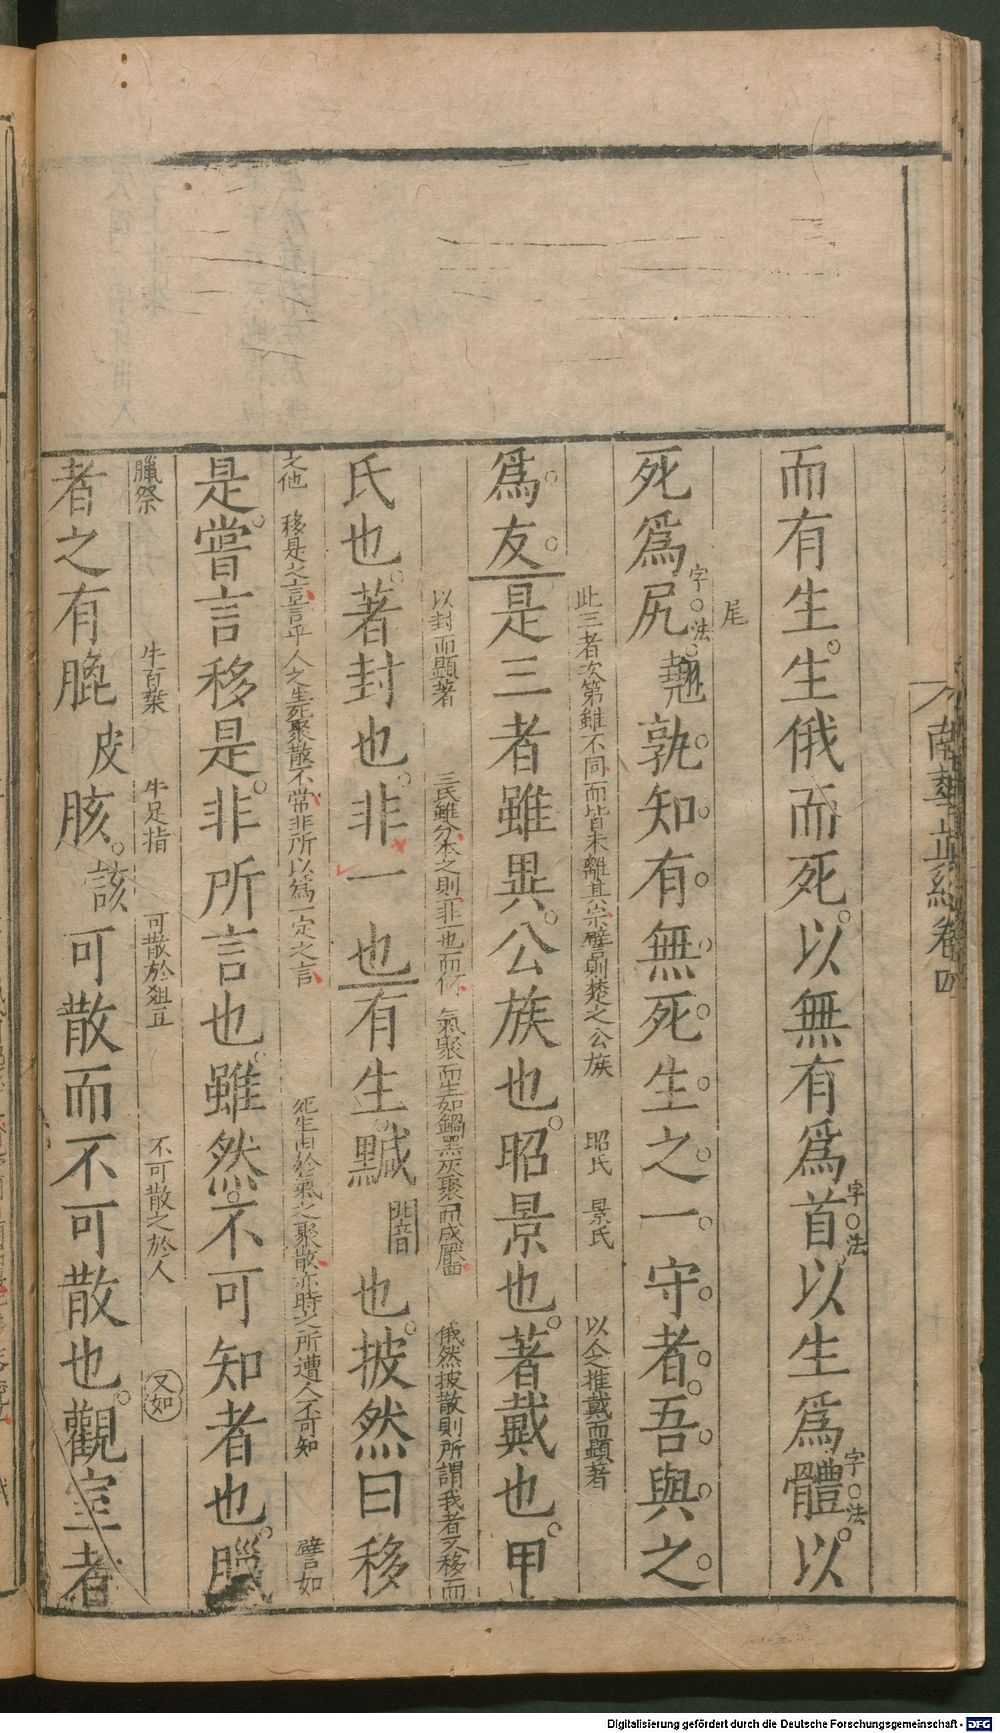 南華真經卷四
而有生生俄而死以無有爲首以生爲體以
字法
字法
尾
死爲尻翹孰知有無死生之一守者吾與之
字法
此三者次第雖不同而皆未離其宗譬則楚之公族 昭氏 景氏 以人之推戴而顯著
爲友是三者雖異公族也昭景也著戴也甲
以封而顯著 三氏雖分本之則非一也而何 氣聚而生如鍋黑灰聚而成靨 俄然披散則所謂我者又移而
氏也著封也非一也有生黬闇也披然曰移
之他 移是之言言乎人之生死聚散不常非所以爲一定之言 死生由於氣之聚散亦時之所遭人不可知 譬如
是嘗言移是非所言也雖然不可知者也臘
臘祭 牛百葉 牛足指 可散於俎豆 不可散之於人 又如
者之有膍皮胲該可散而不可散也觀室者
Digitalisierung gefördert durch die Deutsche Forschungsgemeinschaft - DFG